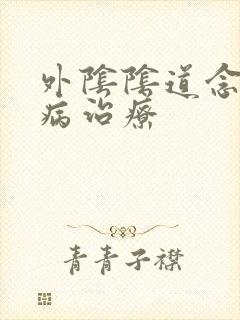 外陰陰道念
病治療
青青子襟